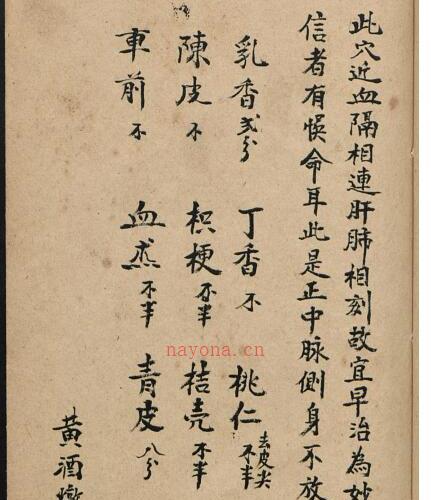 此穴近血隔相連肝肺相刻故宜早治為妙
信者有悞命耳此是正中脉側身不放
乳香弍分 丁香不 桃仁去皮尖不半
陳皮不 枳梗不半 桔壳不半
車前不 血 不半 青皮八分
黄酒燉
nayona.cn